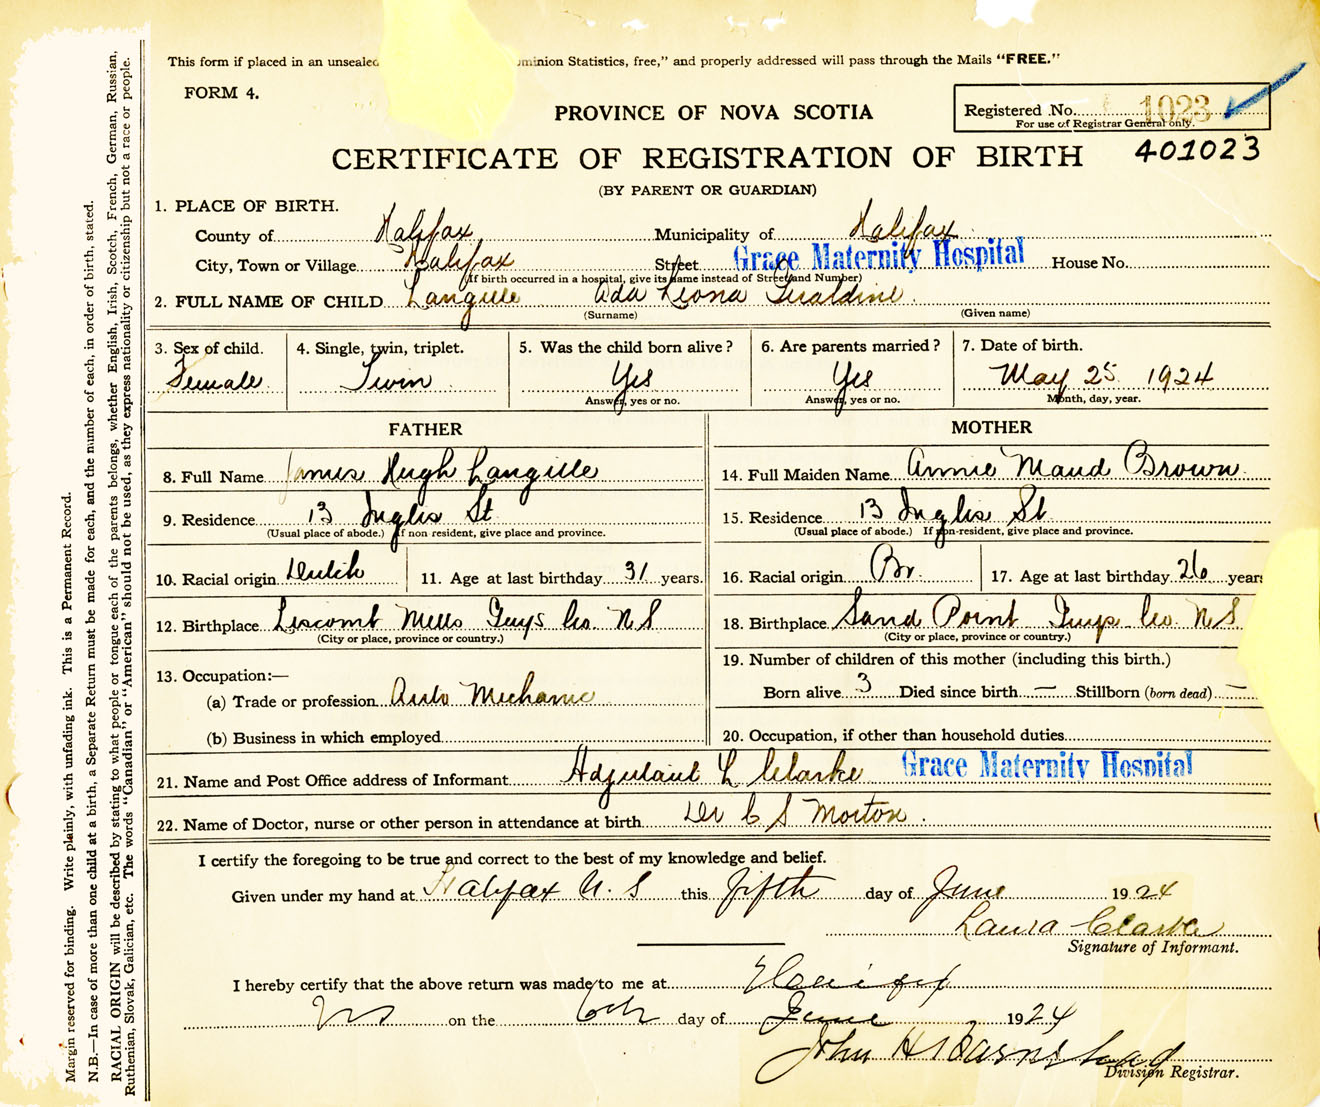 This form if placed in an unsealed ominion Statistics, free," and properly addressed will pass through the Mails "FREE."
FORM 4.
Registered No. 1023
For use of Registrar General only.
PROVINCE OF NOVA SCOTIA
CERTIFICATE OF REGISTRATION OF BIRTH 401023
(BY PARENT OR GUARDIAN)
1. PLACE OF BIRTH.
County of Halifax Municipality of Halifax
City, Town or Village Halifax Street Grace Maternity Hospital House No.
(If birth occurred in a hospital, give its name instead of Street and Number)
2. FULL NAME OF CHILD Langille Ada Leona Geraldine.
(Surname) (Given name)
3. Sex of child. 4. Single, twin, triplet. 5. Was the child born alive? 6. Are parents married? 7. Date of birth.
Female Twin Yes Yes May 25 1924
Answer, yes or no. Answer, yes or no. Month, day, year.
FATHER MOTHER
8. Full Name James Hugh Langille 14. Full Maiden Name Annie Maud Brown
9. Residence 13 Inglis St 15. Residence 13 Inglis St
(Usual place of abode.) If non resident, give place and province. (Usual place of abode.) If non-resident, give place and province.
10. Racial origin Dutch 11. Age at last birthday 31 years. 16. Racial origin Br. 17. Age at last birthday 26 years
12. Birthplace Liscomb Mills Guys Co. N S 18. Birthplace Sand Point Guys Co. N S
(City or place, province or country.) (City or place, province or country.)
13. Occupation:—
(a) Trade or profession Auto Mechanic
(b) Business in which employed
19. Number of children of this mother (including this birth.)
Born alive 3 Died since birth — Stillborn (born dead) —
20. Occupation, if other than household duties
21. Name and Post Office address of Informant Adjutant L Clarke Grace Maternity Hospital
22. Name of Doctor, nurse or other person in attendance at birth Dr C S Morton.
I certify the foregoing to be true and correct to the best of my knowledge and belief.
Given under my hand at Halifax N. S this fifth day of June 1924
Laura Clarke
Signature of Informant.
I hereby certify that the above return was made to me at Halifax
NS on the 6th day of June 1924
John H Barnstead
Division Registrar.
Margin reserved for binding. Write plainly, with unfading ink. This is a Permanent Record.
N.B.—In case of more than one child at a birth, a Separate Return must be made for each, and the number of each, in order of birth, stated.
RACIAL ORIGIN will be described by stating to what people or tongue each of the parents belongs, whether English, Irish, Scotch, French, German, Russian,
Ruthenian, Slovak, Galician, etc. The words "Canadian" or "American" should not be used, as they express nationality or citizenship but not a race or people.